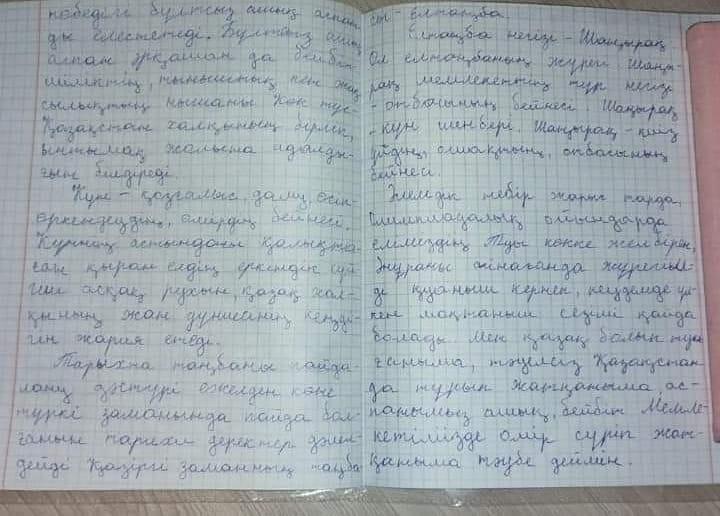 төбедегі бұлтсыз ашық аспан
ды елестетеді. Бұлтсыз ашық
аспан әрқашан да бейбіт
шіліктің, тыныштық пен жақ
сылықтың нышаны. Көк түс-
Қазақстан халқының бірлік,
ынтымақ жолына адалды-
ғын білдіреді.
Күн - қозғалыс, даму, өсіп-
өркендеудің, өмірдің бейнесі.
Күннің астындағы қалықта-
ған қыран елдің еркіндік сүй
гіш асқақ рухын, қазақ хал-
қының жан дүниесінің кеңді-
гін жария етеді.
Тарихта таңбаны пайда-
лану дәстүрі ежелден көне
түркі заманында пайда бол-
ғанын тарихи деректер дәлел-
дейді Қазіргі заманның таңба
сы - елтаңба.
Елтаңба негізі - Шаңырақ.
Ол елтаңбаның жүрегі. Шаңы-
рақ мемлекеттің түп негізі
- отбасының бейнесі. Шаңырақ
- күн шеңбері. Шаңырақ - киіз
үйдің, ошақтың, отбасының
бейнесі.
Әлемдік небір жарыстарда,
Олимпиадалық ойындарда
еліміздің Туы көкке желбіреп,
Әнұраны ойнағанда жүрегім-
ді қуаныш кернеп, кеудемде үл-
кен мақтаныш сезімі пайда
болады. Мен қазақ болып туы
ғаныма, тәуелсіз Қазақстан-
да тұрып жатқаныма, ас-
панымыз ашық, бейбіт Мемле-
кетімізде өмір сүріп жат-
қаныма тәубе деймін.